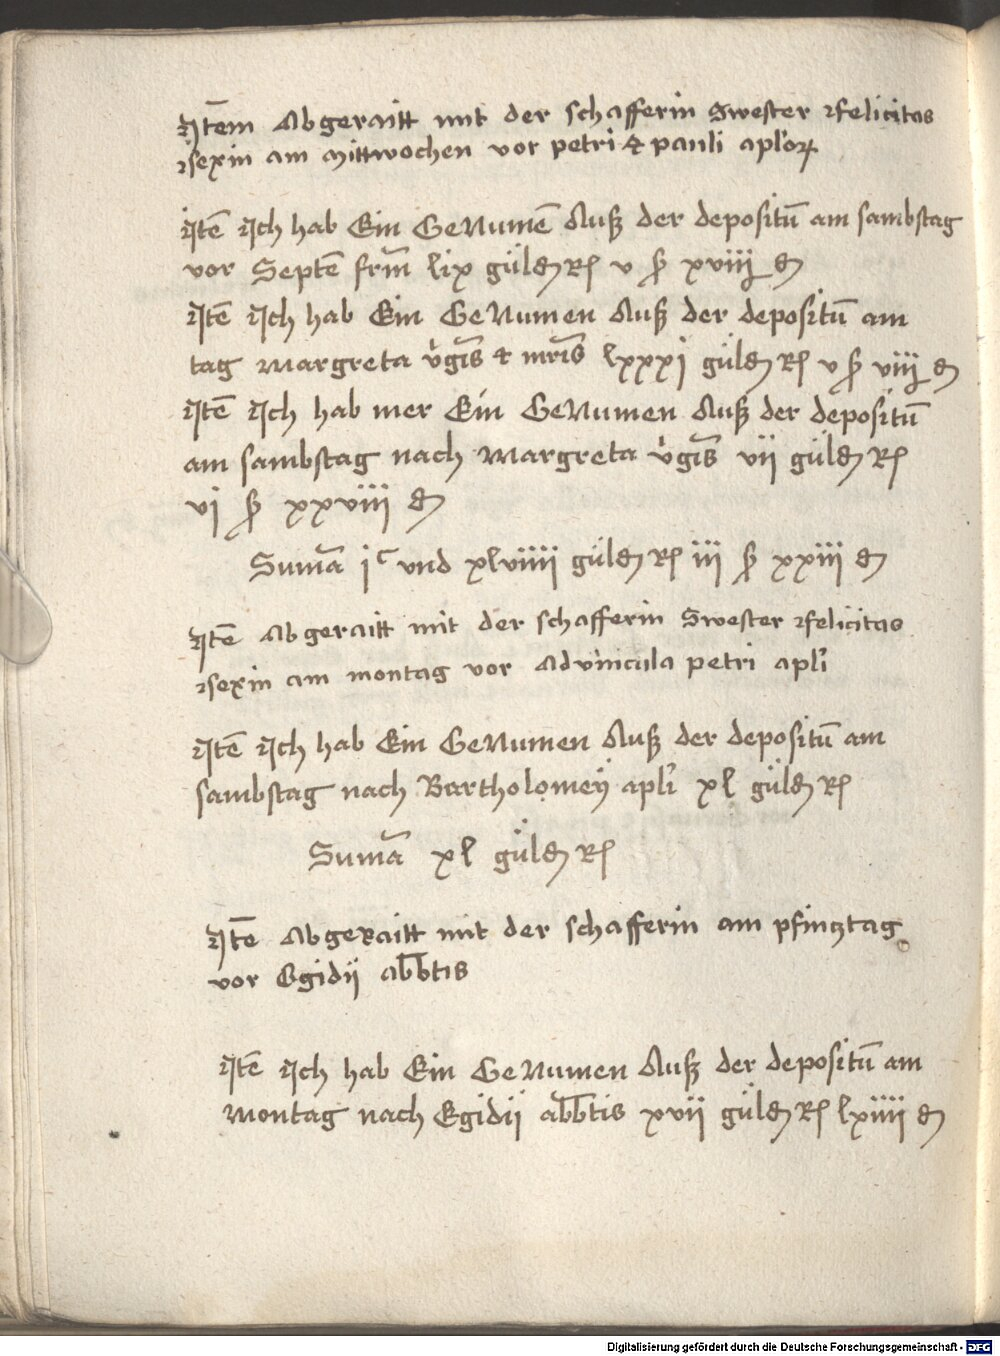 Jtem Abgeraitt mit der schafferin Swester felicitas
sexin am Mittwochen vor petri & pauli aplor
Jtē Jch hab Ein GeNumē Auß der depositū am sambstag
vor Septē frm̄ lix güldn Rh v ß xviii dn
Jtē Jch hab Ein GeNumen Auß der depositū am
tag Margreta v̓gīs & mr̄is lxxxj güldn Rh v ß viii dn
Jtē Jch hab mer Ein GeNumen Auß der depositū
am sambstag nach Margreta v̓gīs vii güldn Rh
vj ß xxviii dn
Sum̄a jᶜ vnd xlviiii güldn Rh iii ß xxiii dn
Jtē Abgeraitt mit der schafferin Swester felicitas
sexin am montag vor Advincula petri apl̓i
Jtē Jch hab Ein GeNumen Auß der depositū am
sambstag nach Bartholomeÿ apl̓i xl güldn Rh
Sum̄a xl güldn Rh
Jtē Abgeraitt mit der schafferin am pfincztag
vor Egidij abb̄tis
Jtē Jch hab Ein GeNumen Auß der depositū am
Montag nach Egidij abb̄tis xvii güldn Rh lxiiii dn
Digitalisierung gefördert durch die Deutsche Forschungsgemeinschaft - DFG